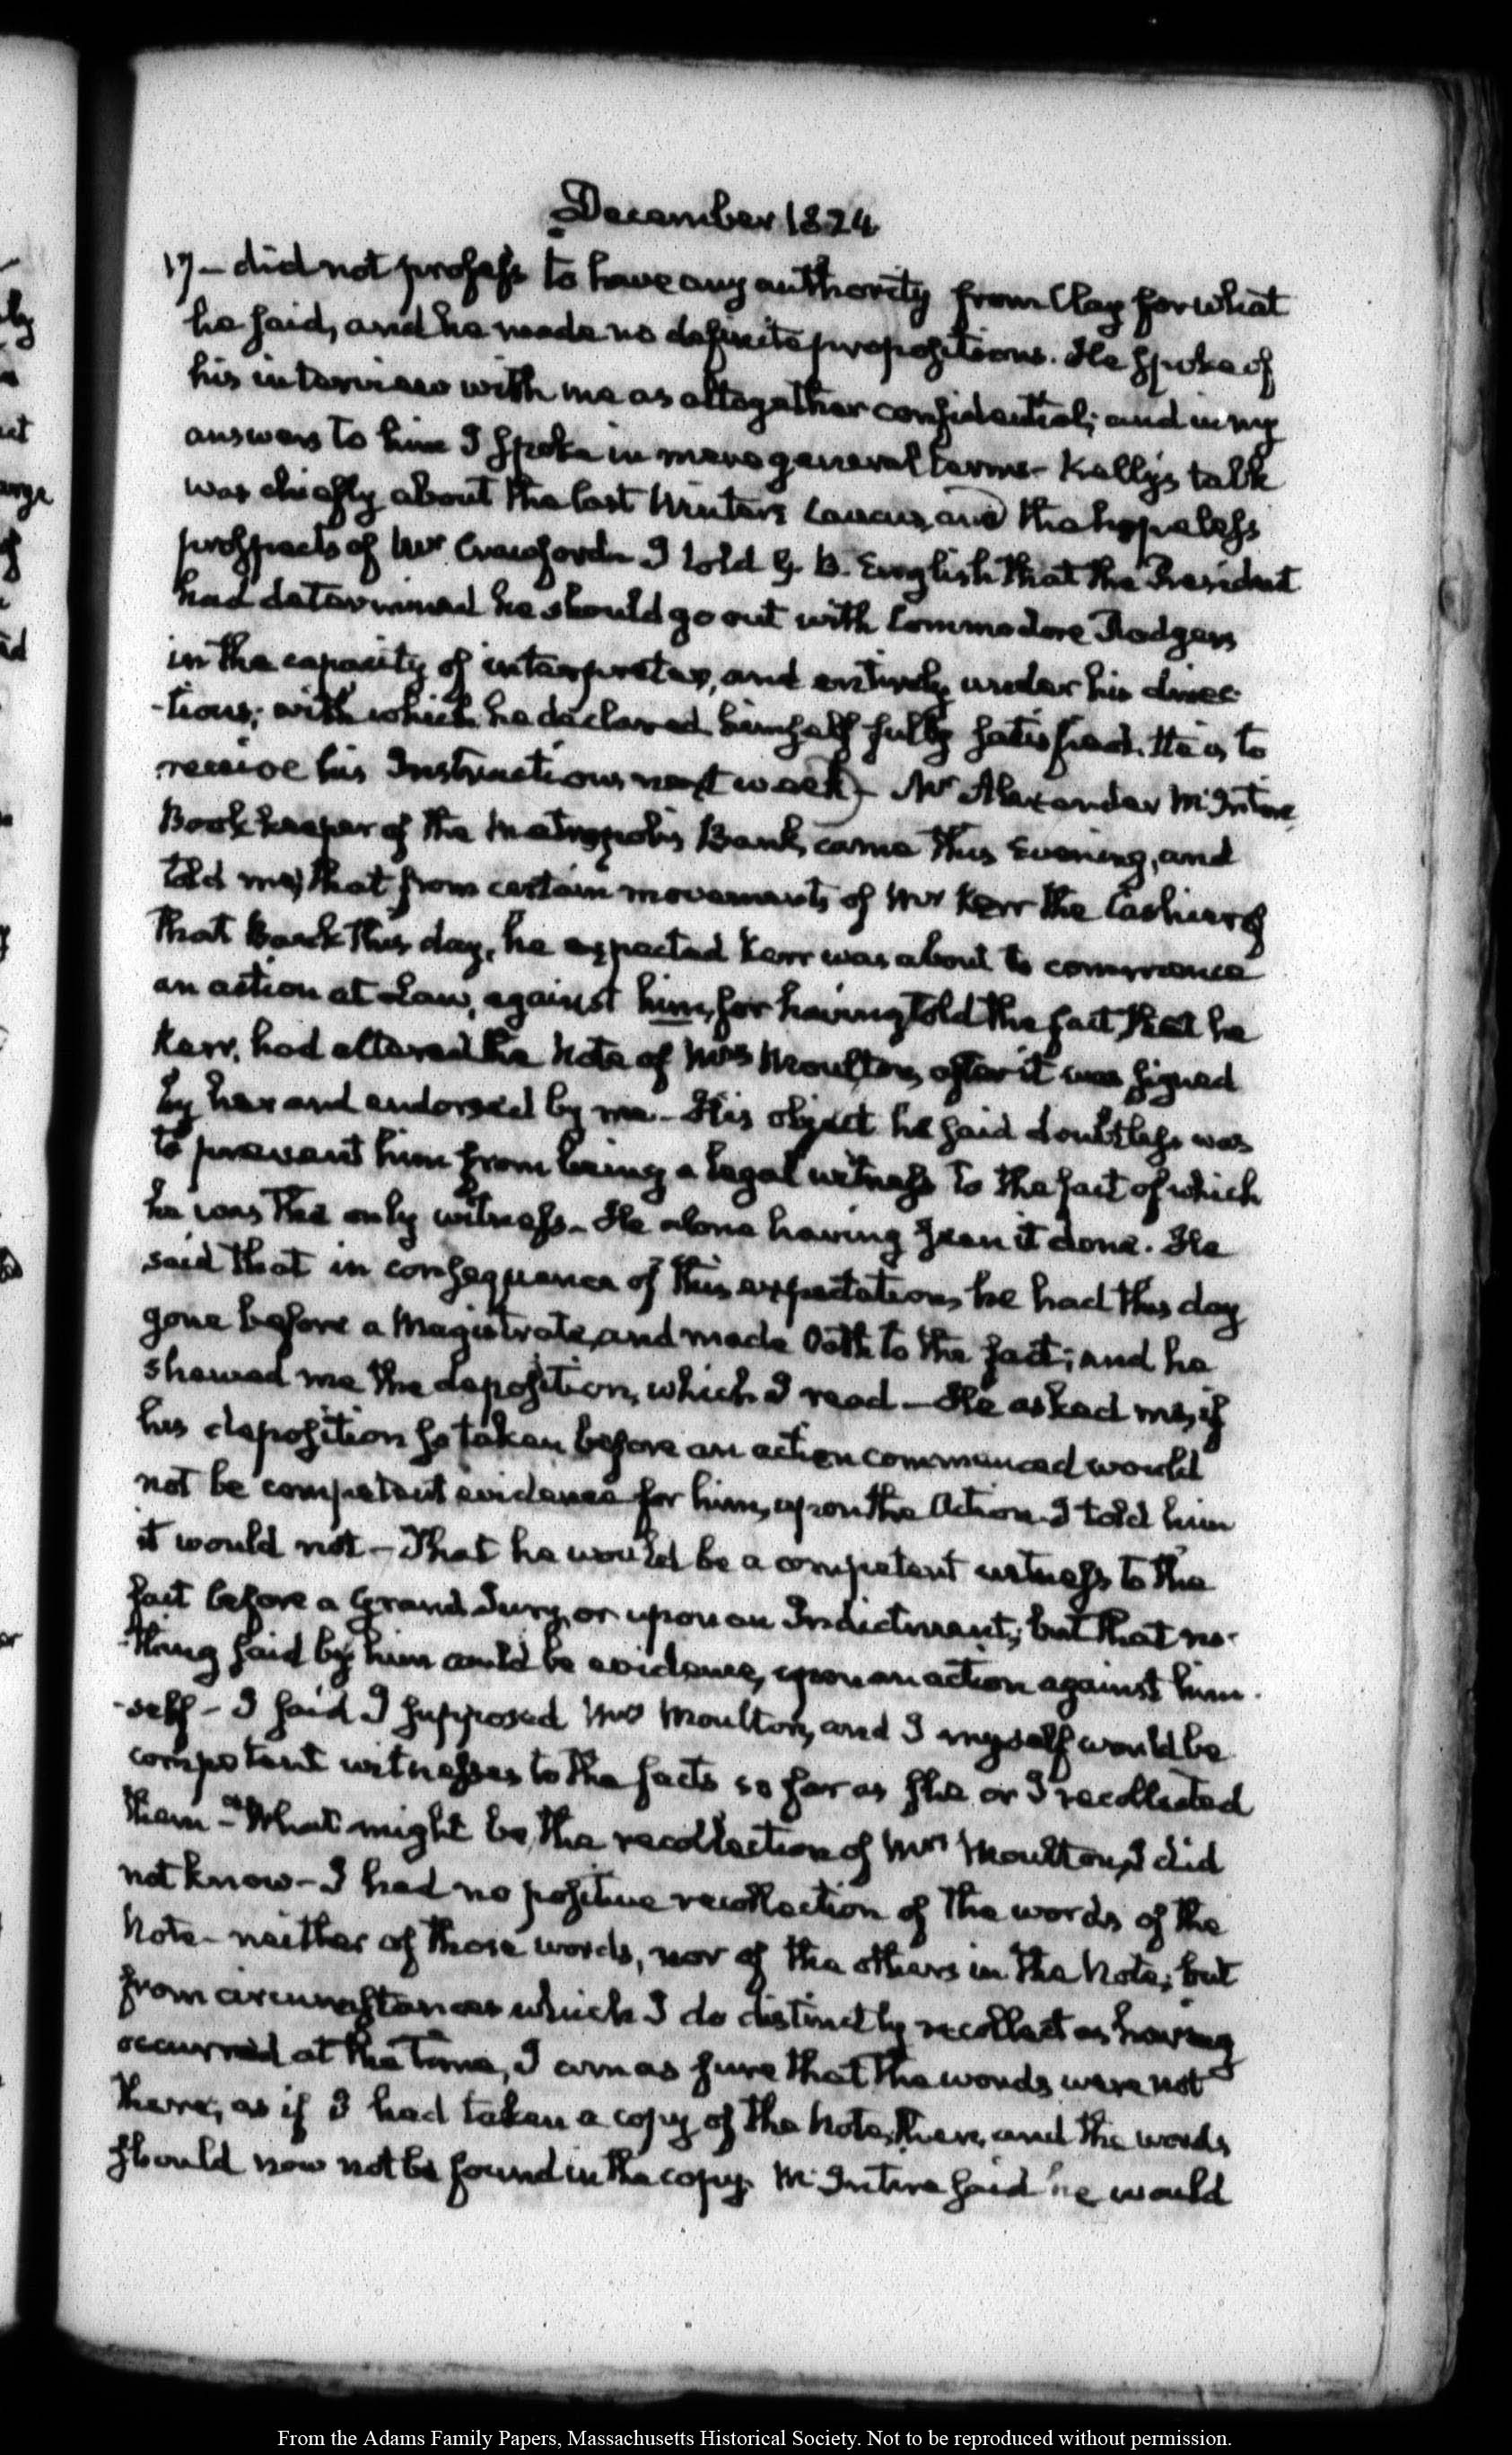 December 1824
17 – did not profess to have any authority from Clay for what
he said, and he made no definite propositions. He spoke of
his interview with me as altogether confidential; and in my
answers to him I spoke in mere general terms – Kelly's talk
was chiefly about the last Winter's Caucus, and the hopeless
prospects of Mr Crawford – I told G. B. English that the President
had determined he should go out with Commodore Rodgers
in the capacity of interpreter, and entirely under his direc-
-tions; with which he declared himself fully satisfied. He is to
receive his Instructions next week) – Mr Alexander McIntire,
Book keeper of the Metropolis Bank, came this Evening, and
told me, that from certain movements of Mr Kerr the Cashier of
that Bank this day, he expected Kerr was about to commence
an action at Law, against him, for having told the fact, that he
Kerr, had altered the Note of Mrs Moulton, after it was signed
by her and endorsed by me – His object he said doubtless was
to prevent him from being a legal witness to the fact of which
he was the only witness – He alone having seen it done. He
said that in consequence of this expectation, he had this day
gone before a Magistrate, and made Oath to the fact; and he
shewed me the deposition, which I read – He asked me, if
his deposition so taken before an action commenced would
not be competent evidence for him, upon the Action – I told him
it would not – That he would be a competent witness to the
fact before a Grand Jury, or upon an Indictment; but that no-
-thing said by him could be evidence, upon an action against him-
-self – I said I supposed Mrs Moulton, and I myself would be
competent witnesses to the facts so far as she or I recollected
them – What might be the recollection of Mrs Moulton, I did
not know – I had no positive recollection of the words of the
Note – neither of those words, nor of the others in the Note; but
from circumstances which I do distinctly recollect as having
occurred at the time, I am as sure that the words were not
there, as if I had taken a copy of the Note, then, and the words
should now not be found in the copy. McIntire said he would
From the Adams Family Papers, Massachusetts Historical Society. Not to be reproduced without permission.